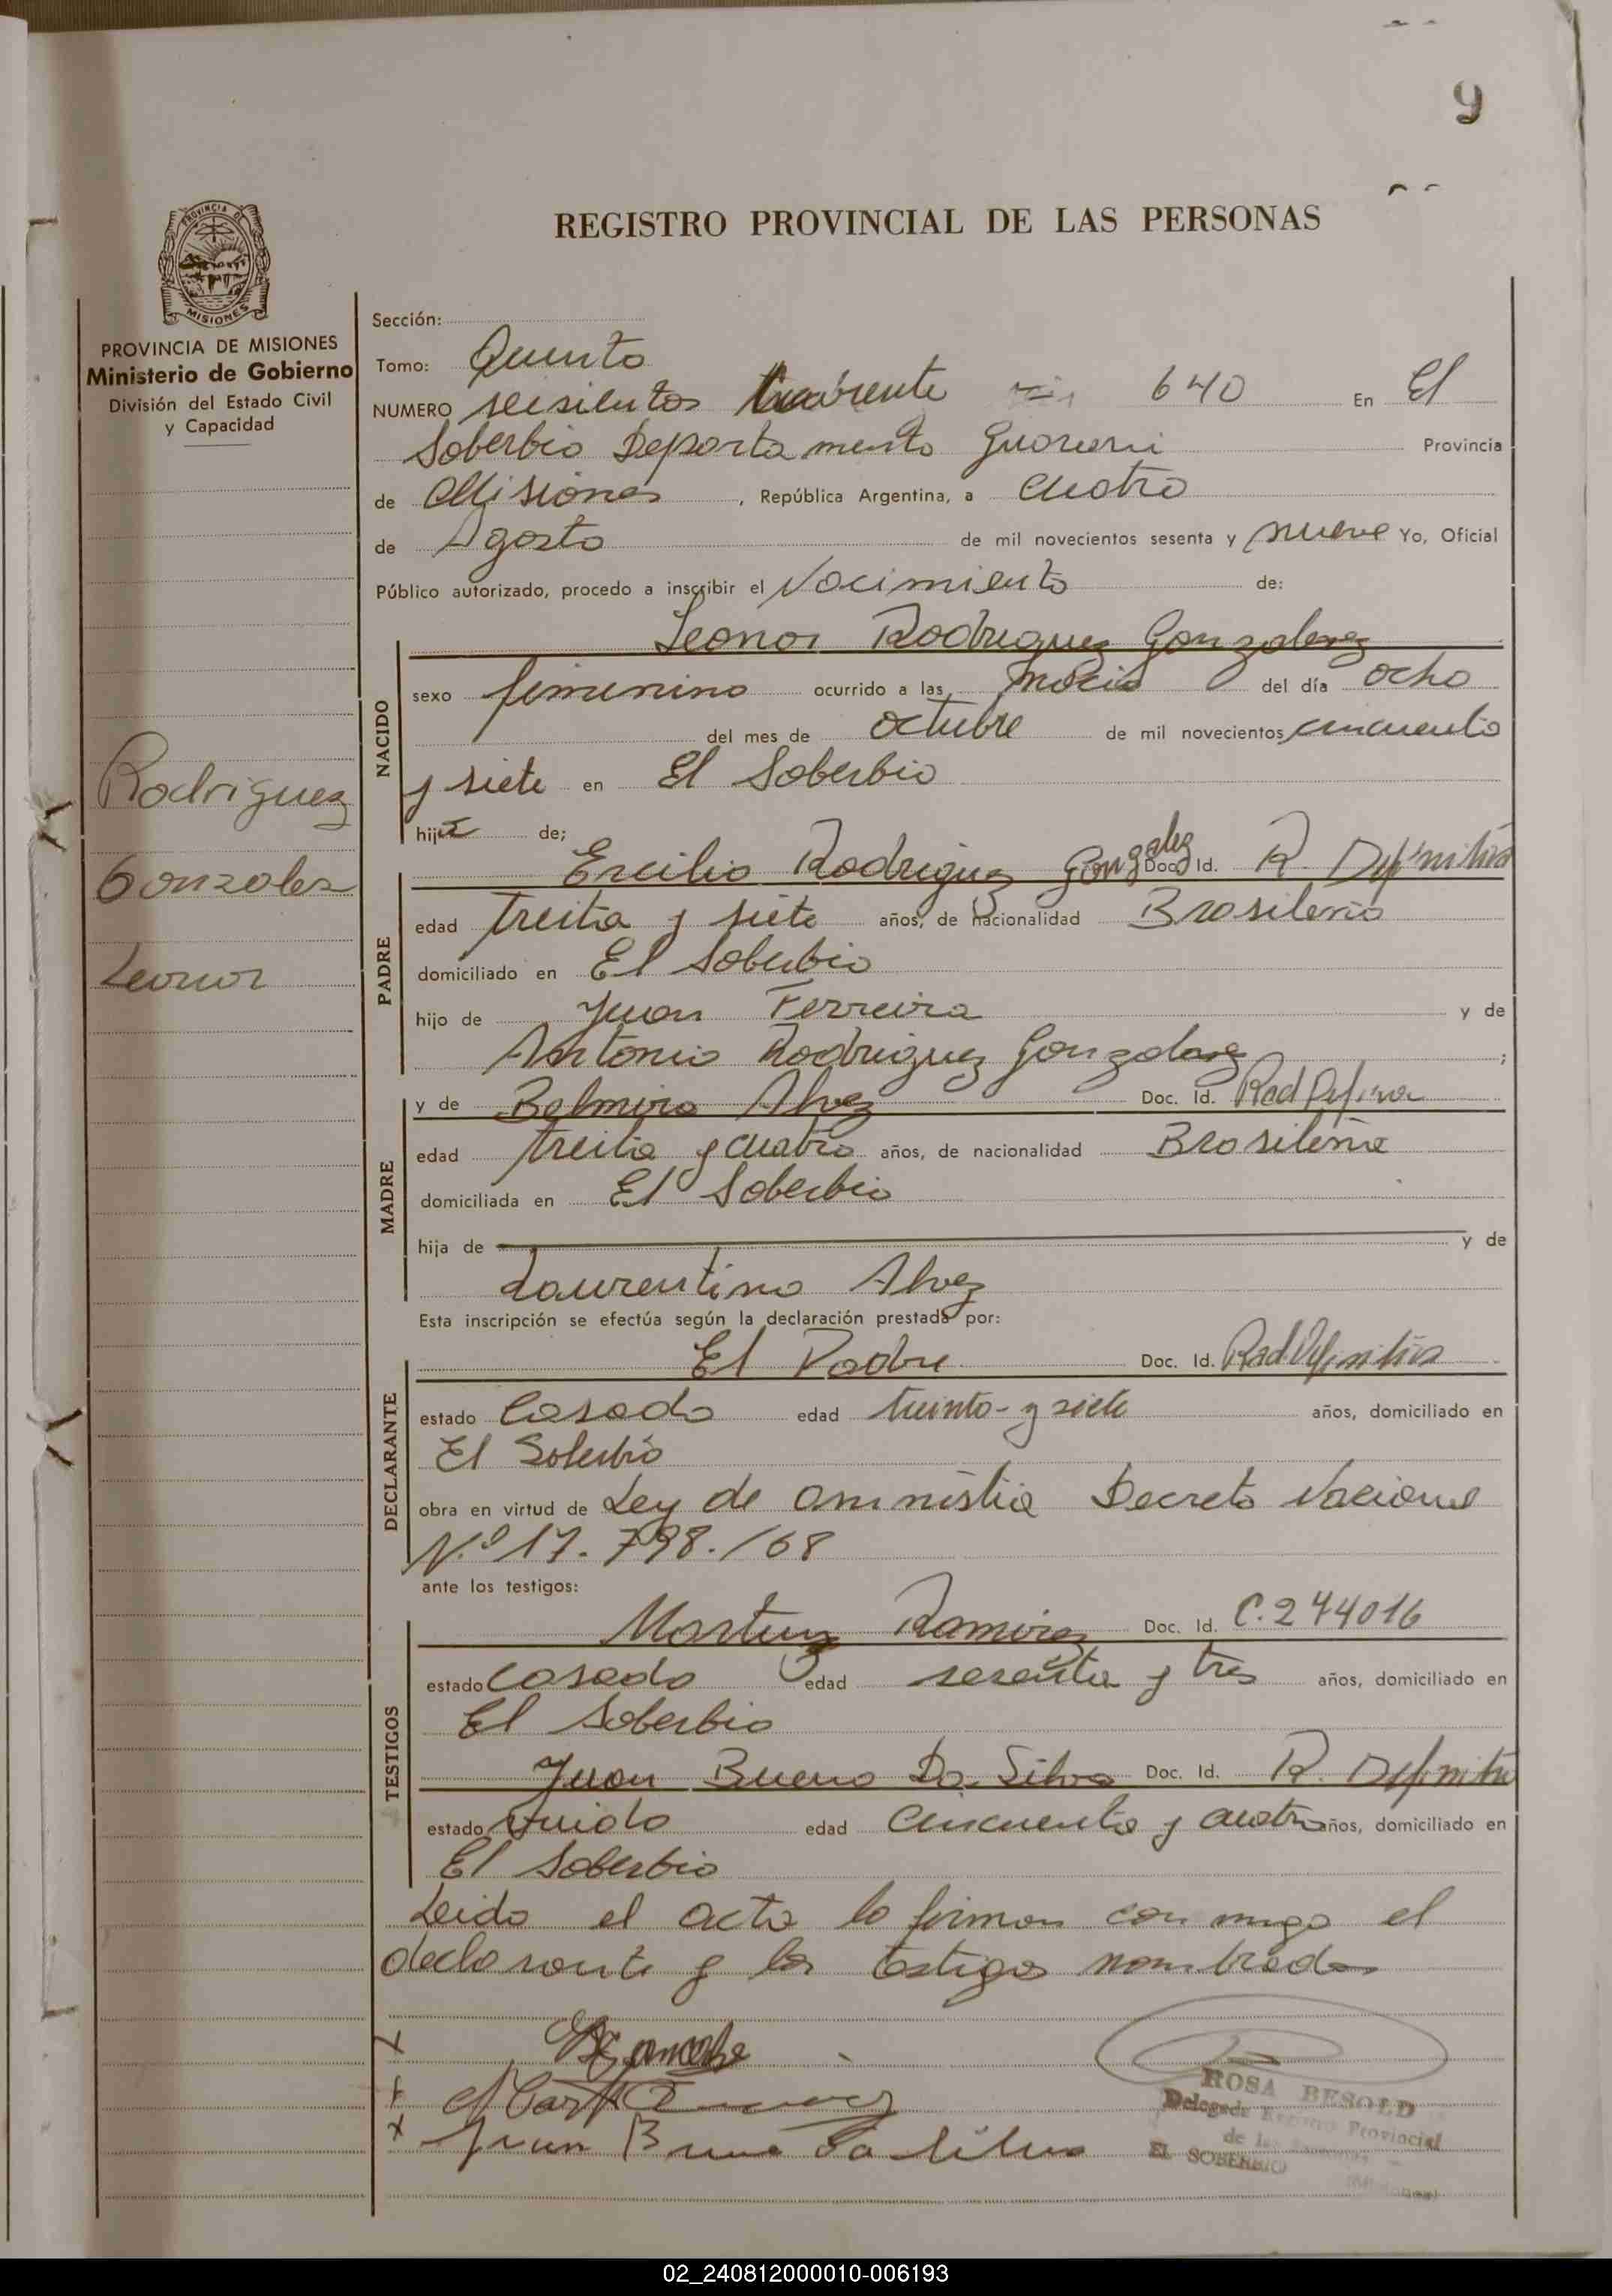 9
REGISTRO PROVINCIAL DE LAS PERSONAS
PROVINCIA DE
MISIONES
PROVINCIA DE MISIONES
Ministerio de Gobierno
División del Estado Civil
y Capacidad
Rodriguez
Gonzalez
Leonor
Sección:
Tomo: Quinto
NUMERO seisientos 640 En El
Soberbio Departamento Guarani Provincia
de Misiones , República Argentina, a cuatro
de Agosto de mil novecientos sesenta y nueve Yo, Oficial
Público autorizado, procedo a inscribir el Nacimiento de:
Leonor Rodriguez Gonzalez
NACIDO
sexo femenino ocurrido a las del día ocho
del mes de octubre de mil novecientos cincuenta
y siete en El Soberbio
hija de;
Ercilio Rodriguez Gonzalez Doc. Id. R. Definitiva
PADRE
edad treita y siete años, de nacionalidad Brasileño
domiciliado en El Soberbio
hijo de Juan Ferreira y de
Antonia Rodriguez Gonzalez ;
y de Belmira Alvez Doc. Id. Rad
MADRE
edad treita y cuatro años, de nacionalidad Brasileña
domiciliada en El Soberbio
hija de y de
Laurentina Alvez
Esta inscripción se efectúa según la declaración prestada por:
El Padre Doc. Id. Rad Definitiva
DECLARANTE
estado Casado edad treinta y siete años, domiciliado en
El Soberbio
obra en virtud de Ley de amnistia Decreto Nacional
N.º 17.798./68
ante los testigos:
Martin Ramirez Doc. Id. C.244016
TESTIGOS
estado casado edad sesenta y tres años, domiciliado en
El Soberbio
Juan Bueno Da Silva Doc. Id. R. Definitiva
estado viudo edad cincuenta y cuatro años, domiciliado en
El Soberbio
Leido el acta lo firman con migo el
declarante y los testigos nombrados
x
x
x Juan Bueno Da Silva
ROSA BESOLD
Delegada Registro Provincial
de las Personas
EL SOBERBIO
(Misiones)
02_240812000010-006193